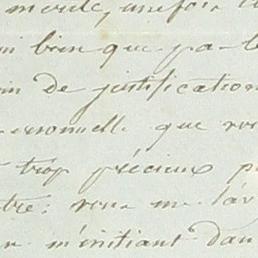 mende, une fois
bien que pa
de justification
ersonnelle que vou
trop précieux p
tre: vous me l'av
m'initiant dan